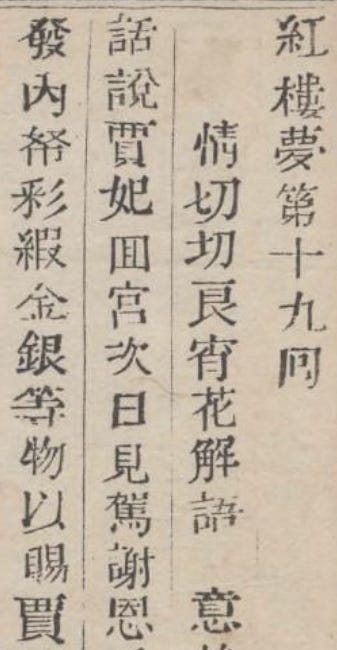 紅樓夢第十九囘
情切切良宵花解語 意
話說賈妃囬宮次日見駕謝恩
發內帑彩緞金銀等物以賜賈